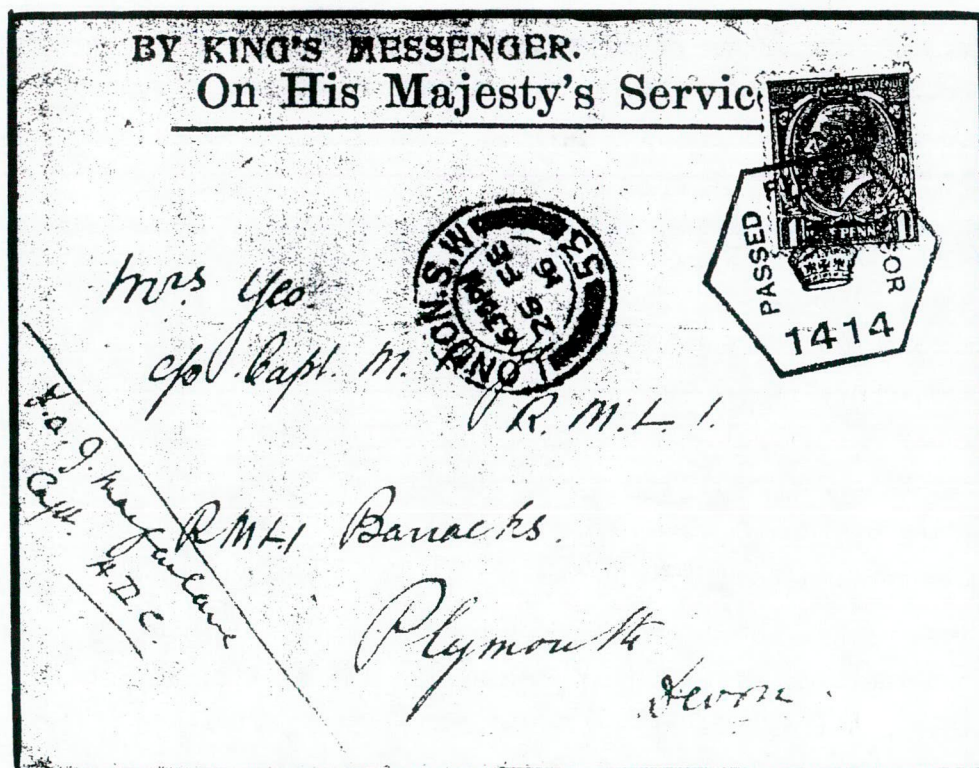 BY KING'S MESSENGER.
On His Majesty's Servic
POSTAGE REVENUE
1 PENN 1
PASSED BY CENSOR
1414
LONDON.S.W.
6.30PM
26 FE
16
53
Mrs Yeo.
c/o Capt. M.
R. M. L. I.
RMLI Barracks.
Plymouth
Devon.
Capt.
A.D.C.